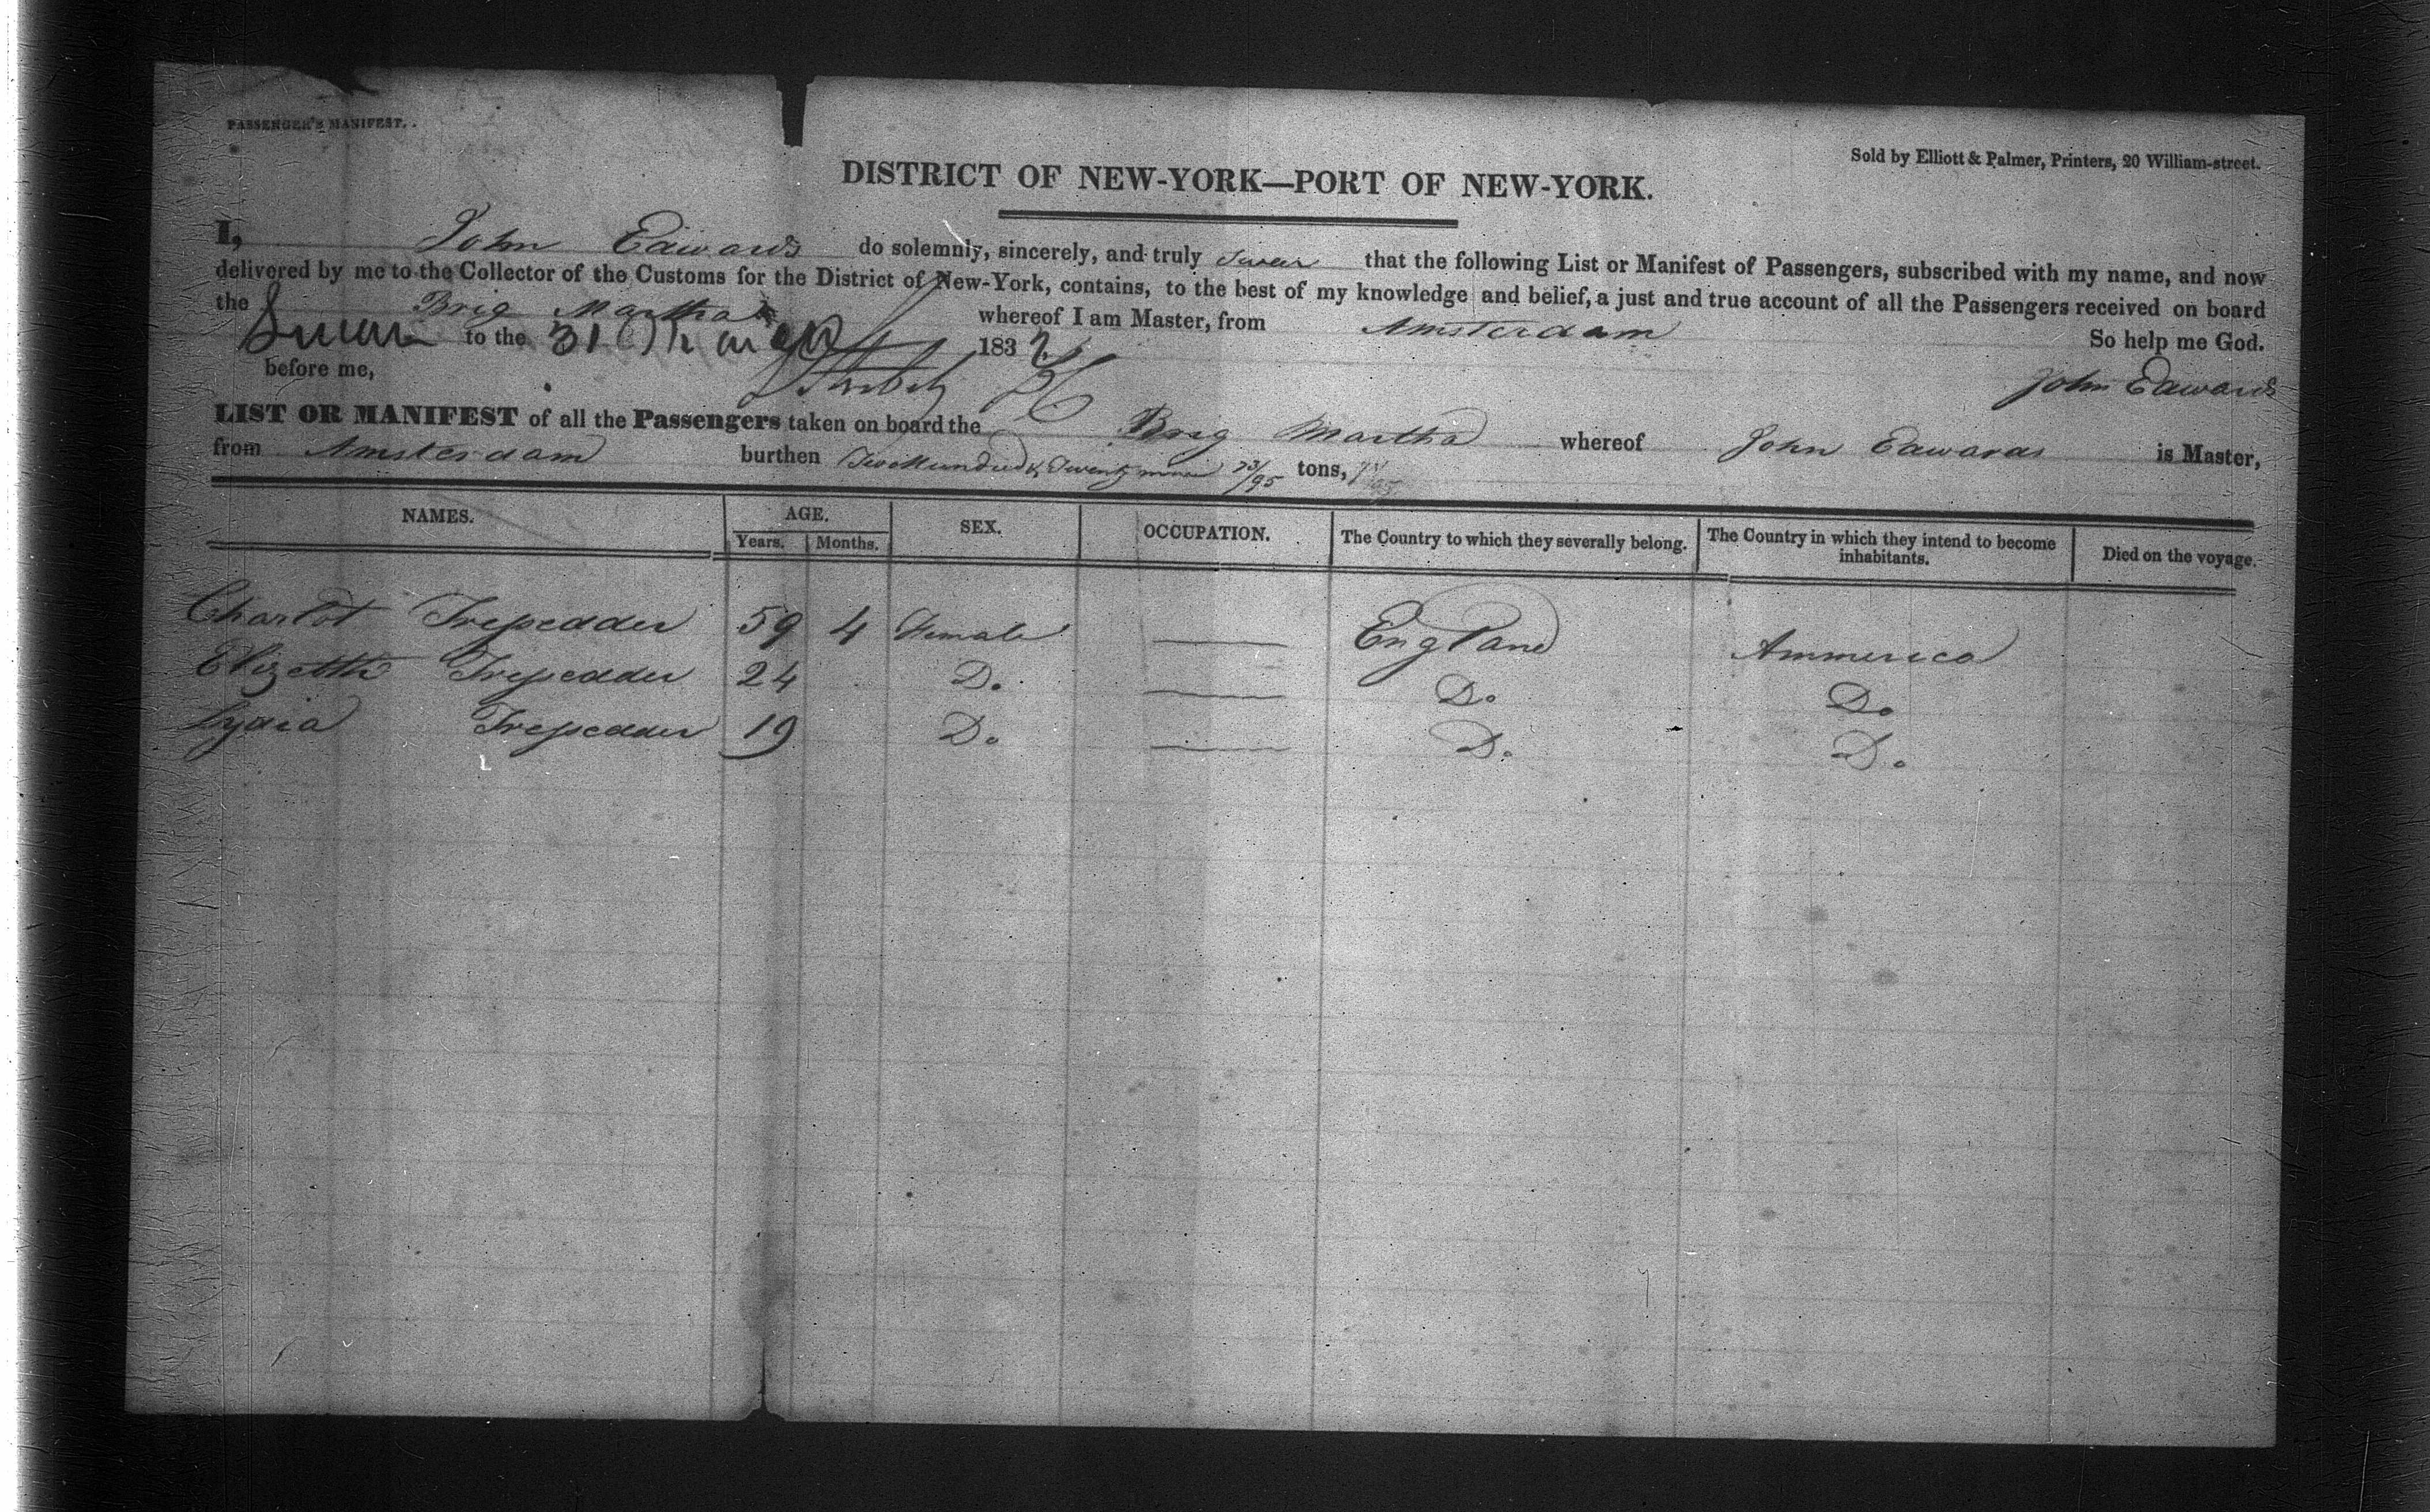 PASSENGER'S MANIFEST.
Sold by Elliott & Palmer, Printers, 20 William-street.
DISTRICT OF NEW-YORK—PORT OF NEW-YORK.
I, John Edwards do solemnly, sincerely, and truly Swear that the following List or Manifest of Passengers, subscribed with my name, and now
delivered by me to the Collector of the Customs for the District of New-York, contains, to the best of my knowledge and belief, a just and true account of all the Passengers received on board
the Brig Martha whereof I am Master, from Amsterdam So help me God.
to the 31 183
before me,
John Edwards
LIST OR MANIFEST of all the Passengers taken on board the Brig Martha whereof John Edwards is Master,
from Amsterdam burthen Two Hundred & Twenty nine 73/95 tons,
NAMES. AGE. SEX. OCCUPATION. The Country to which they severally belong. The Country in which they intend to become inhabitants. Died on the voyage.
Years. Months.
Charlot 59 4 Female England Ammerica
Elizeth 24 Do Do Do
Lydia 19 Do Do Do